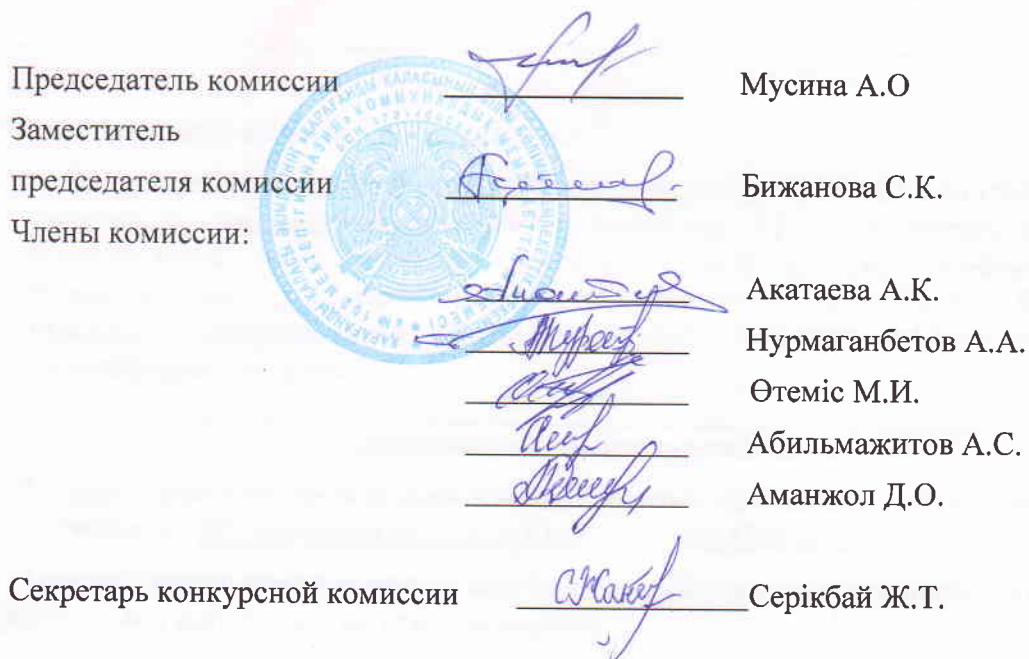 Председатель комиссии Мусина А.О
Заместитель
председателя комиссии Бижанова С.К.
Члены комиссии:
Акатаева А.К.
Нурмаганбетов А.А.
Өтеміс М.И.
Абильмажитов А.С.
Аманжол Д.О.
Секретарь конкурсной комиссии Серікбай Ж.Т.